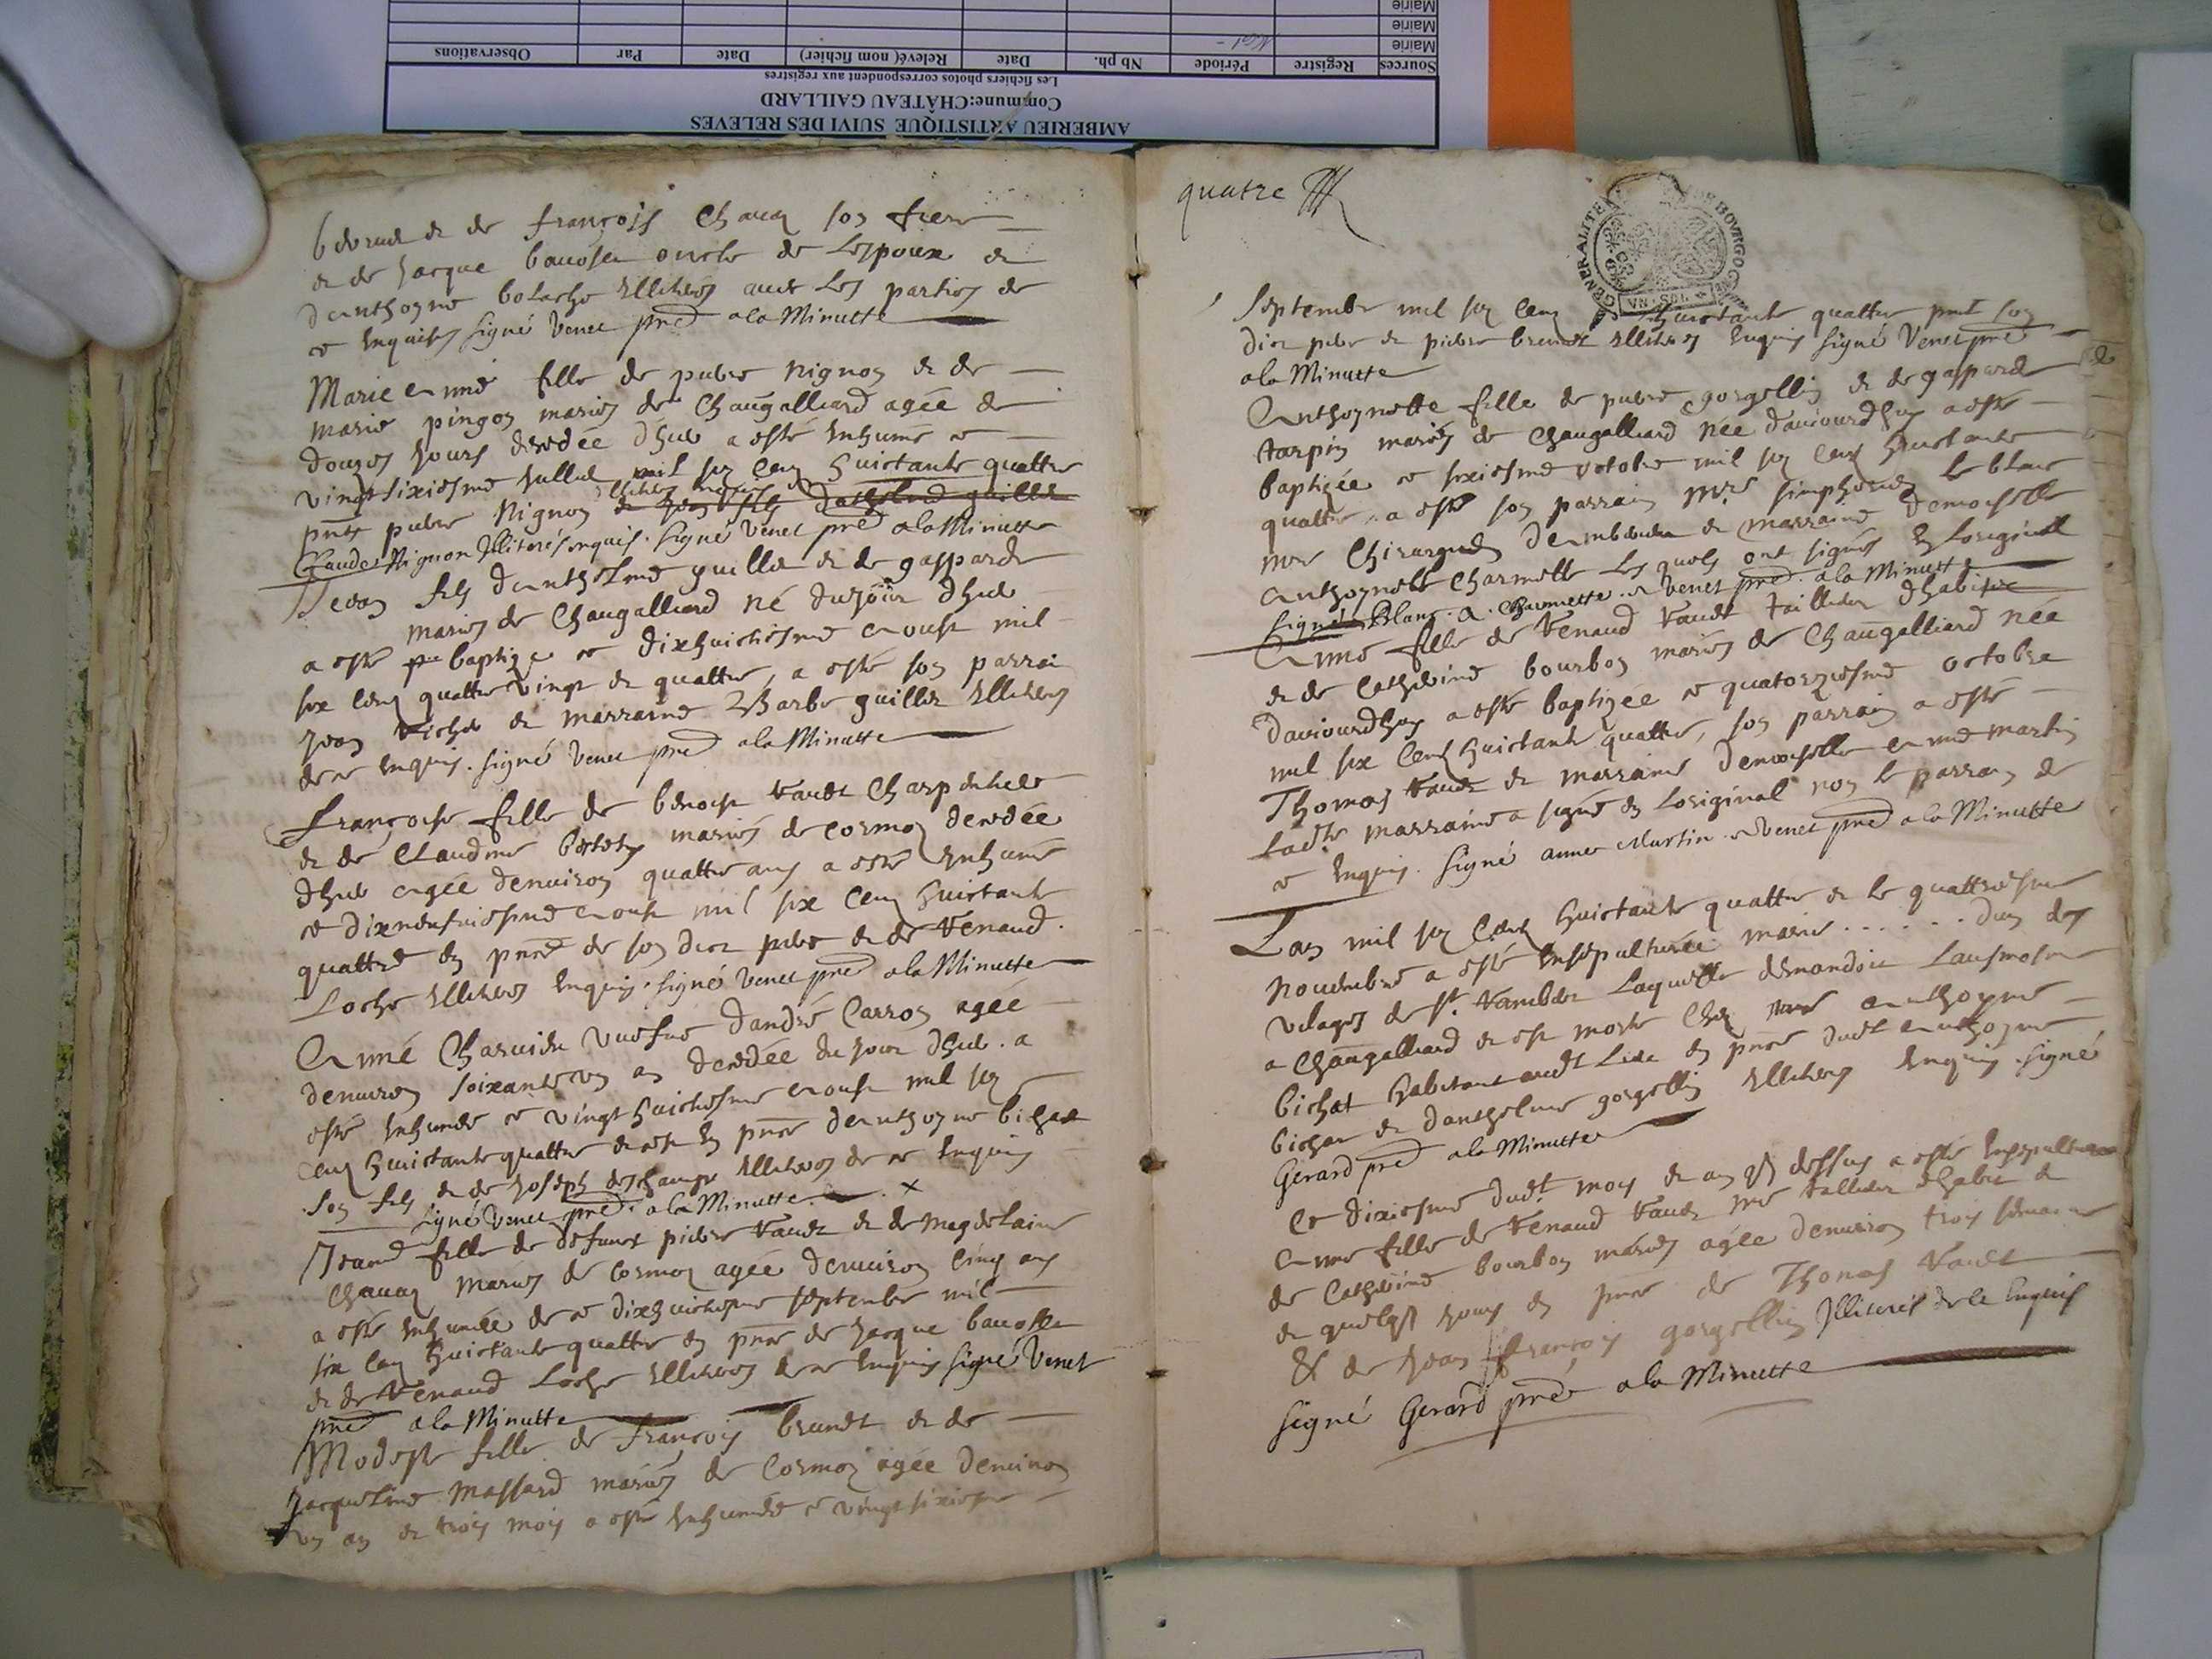 AMBERIEU ARTISTIQUE SUIVI DES RELEVES
Commune: CHÂTEAU GAILLARD
Les fichiers photos correspondent aux registres
Sources Registre Période Nb ph. Date Relevé (nom fichier) Date Par Observations
Mairie
Mairie
Mairie
et de françois Chaney son frere
et de Jacque bauosen oncle de Lespoux et
danthoyne bolache Illiteres auec Les parties de
ce enquis signé Venet pre a la Minutte
Marie anne fille de piere Nignon et de
marie pingon mariés de Chaugalliard agée de
douze Jours decedée dhier a esté inhumé ce
vingtsixiesme Juillet mil six cens huictante quattre
pnts piere Nignon Illiteres enquis et
Claude Nignon Illiterés enquis. signé Venet pre a la Minutte
Jean fils danthelme guillet et de gasparde
mariés de Chaugalliard né du jour dhier
a esté baptizé ce dixhuictiesme aoust mil
six cens quattre vingt et quattre, a esté son parrain
Jean et marraine Barbe guillet Illiteres
de ce enquis. signé Venet pre a la Minutte
françoise fille de benoist vaudt Charpentier
et de Claudine mariés de Cormoz decedée
dhier agée denuiron quattre ans a esté inhumé
ce dixneufuiesme aoust mil six cens huictante
quattre en pnce de son dict pere et de Renaud
Loche Illiteres enquis. signé Venet pre a la Minutte
Anné Charuieu veufue dandré Carron agée
denuiron soixante un an decedée du jour dhier. a
esté inhumée ce vingt huictiesme aoust mil six
cens huictante quattre et ce en pnce danthoyne bichat
son fils et de Joseph deschamps Illiteres de ce enquis
signé Venet pre. a la Minutte. x
Jeanne fille de defunct piere vaudt et de Magdelaine
Chanay mariés de Cormoz agée denuiron cinq ans
a esté inhumée de ce dixhuictiesme septembre mil
six cens huictante quattre en pnce de Jacque bauosen
et de Renaud Loche Illiteres de ce enquis signé Venet
pre a la Minutte
Modeste fille de françois brundt et de
Jacqueline Massard mariés de Cormoz agée denuiron
un an et trois mois a esté inhumée ce vingtsixiesme
quatre
GENERALITE DE BOVRGOGNE
VN SOL
septembre mil six cens huictante quattre pnt son
dict pere et piere brundt Illiteres enquis signé Venet pre
a la Minutte
Anthoynette fille de piere gorgellin et de gasparde
tarpin mariés de Chaugalliard née daujourdhuy a esté
baptizée ce sixiesme octobre mil six cens huictante
quattre, a esté son parrain Mre simphorien Le blanc
mre Chirurgien et marraine demoiselle
anthoynette Charmette Lesquels ont signés en Loriginal
signé Blanc. A. Charmette. et Venet pre. a la Minutte
Anne fille de Renaud vaudt tailleur dhabitz
et de Catherine bourbon mariés de Chaugalliard née
daujourdhuy a esté baptizée ce quatorziesme octobre
mil six cens huictante quattre, son parrain a esté
Thomas vaudt et marraine demoiselle anne martin
Ladte marraine a signé en Loriginal non le parrain de
ce enquis. signé anne Martin. et Venet pre a la Minutte
Lan mil six cens huictante quattre et le quattriesme
nouembre a esté ensepulturée marie ...... dun des
vilages de st. Rambert Laquelle demandoit Laumosne
a Chaugalliard et est morte chez anthoyne
bichat habitant audt Lieu en pnce dudt anthoyne
bichat et danthelme gorgellin Illiteres enquis. signé
Gerard pre a la Minutte
Ce dixiesme dudt. moys et an qs dessus a esté ensepulturée
anne fille de Renaud vaudt mre tallieur dhabit et
de Catherine bourbon mariés agée denuiron trois semaines
et quelqs jours en pnce de Thomas vaudt
& de Jean françois gorgellin Jlliterés de ce Enquis
signé Gerard pre a la Minutte